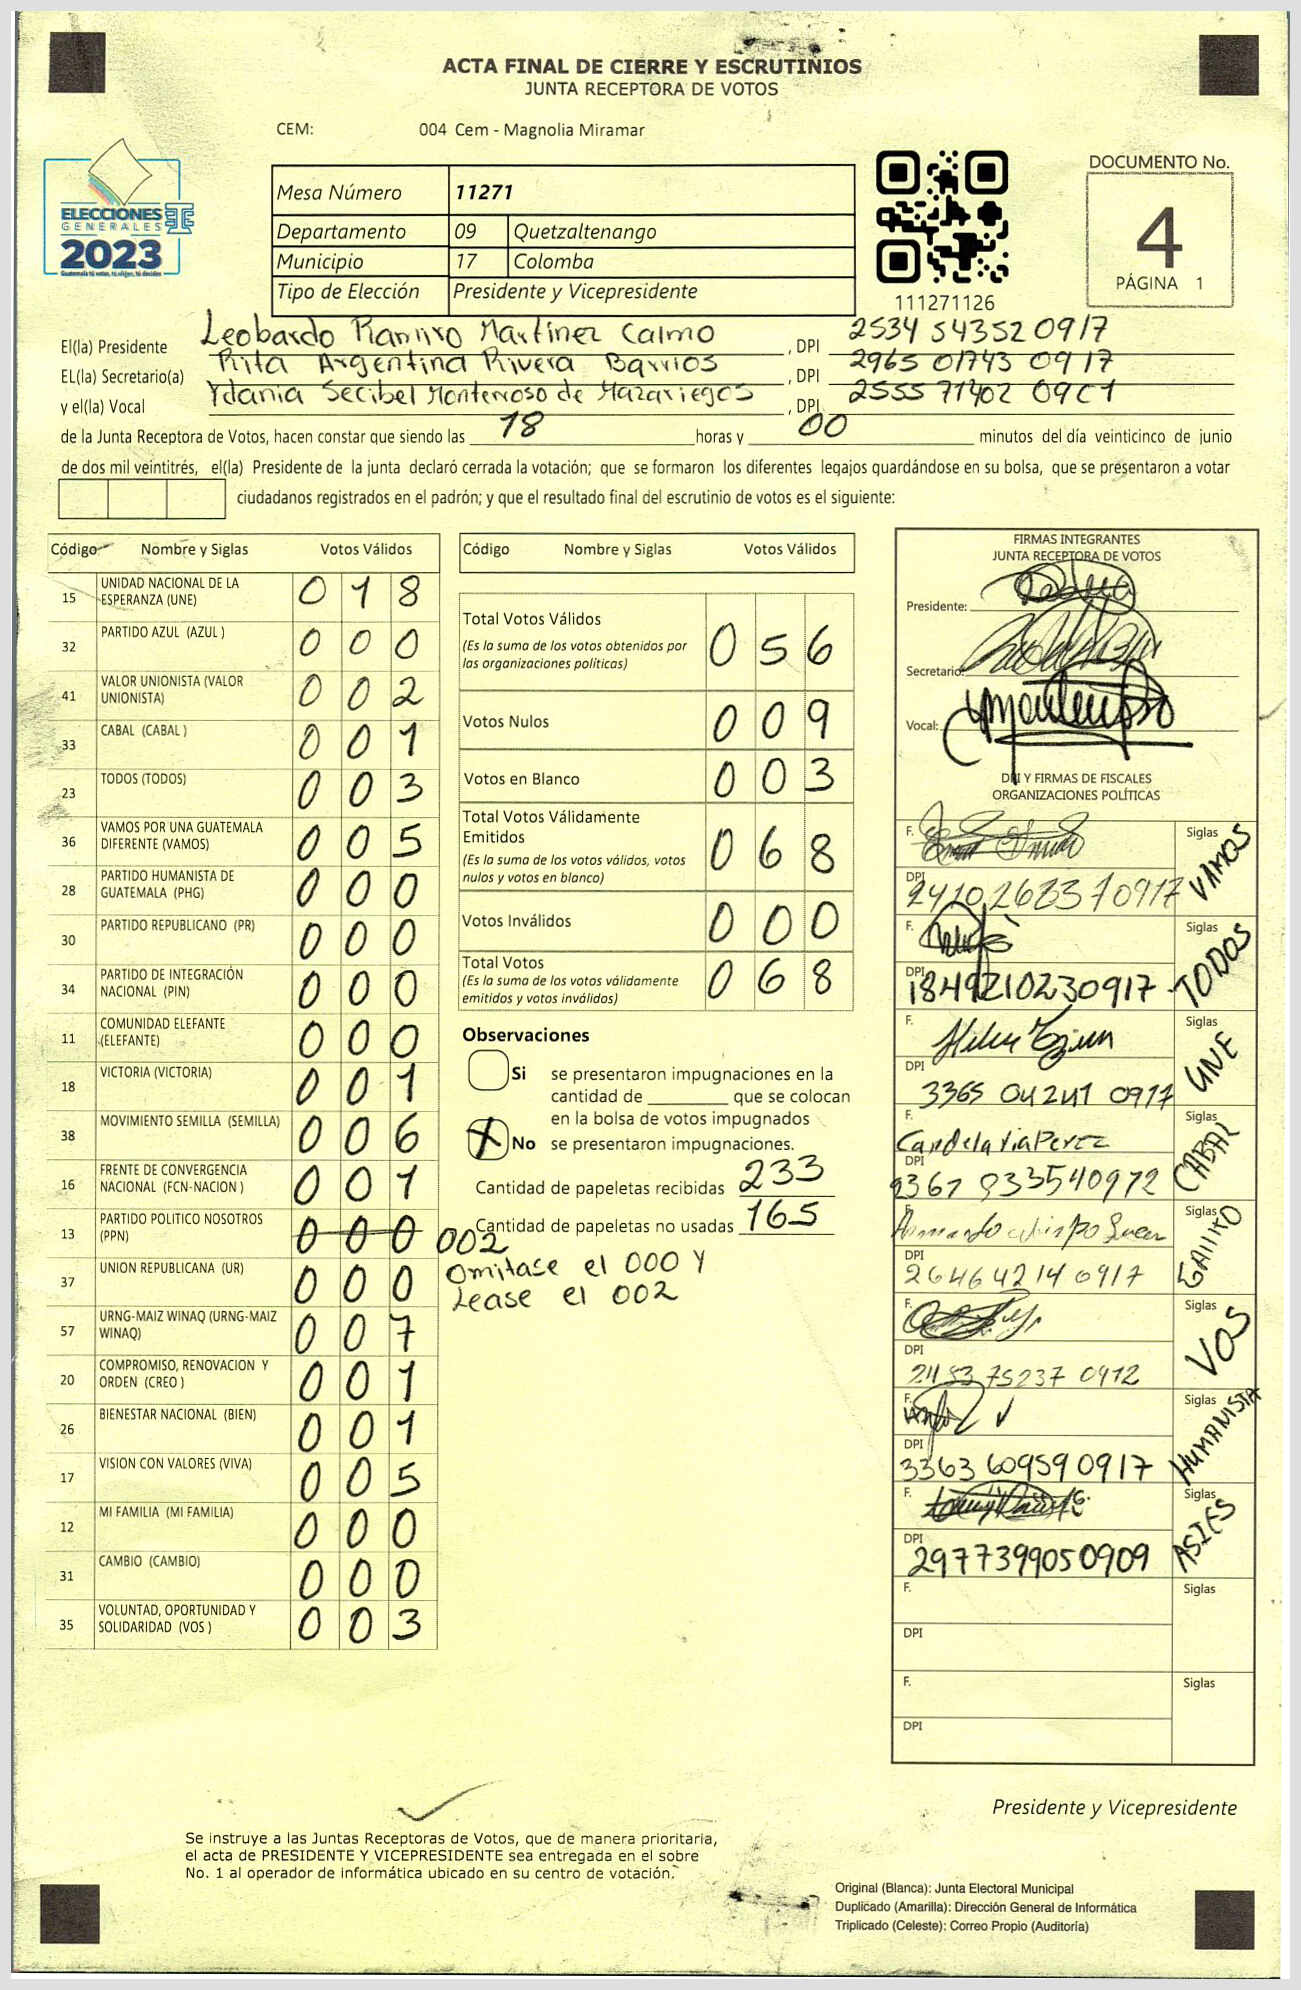 ACTA FINAL DE CIERRE Y ESCRUTINIOS
JUNTA RECEPTORA DE VOTOS
CEM: 004 Cem - Magnolia Miramar
ELECCIONES
GENERALES
2023
Guatemala tú votas, tú eliges, tú decides
Mesa Número 11271
Departamento 09 Quetzaltenango
Municipio 17 Colomba
Tipo de Elección Presidente y Vicepresidente
111271126
DOCUMENTO No.
4
PÁGINA 1
El(la) Presidente Leobardo Ramiro Martínez Calmo, DPI 2534 54352 0917
EL(la) Secretario(a) Rita Argentina Rivera Barrios, DPI 2965 01743 0917
y el(la) Vocal Ydania Secibel Monterroso de Mazariegos, DPI 2555 71402
de la Junta Receptora de Votos, hacen constar que siendo las 18 horas y 00 minutos del día veinticinco de junio
de dos mil veintitrés, el(la) Presidente de la junta declaró cerrada la votación; que se formaron los diferentes legajos guardándose en su bolsa, que se presentaron a votar
ciudadanos registrados en el padrón; y que el resultado final del escrutinio de votos es el siguiente:
Código Nombre y Siglas Votos Válidos
15 UNIDAD NACIONAL DE LA ESPERANZA (UNE) 0 1 8
32 PARTIDO AZUL (AZUL ) 0 0 0
41 VALOR UNIONISTA (VALOR UNIONISTA) 0 0 2
33 CABAL (CABAL ) 0 0 1
23 TODOS (TODOS) 0 0 3
36 VAMOS POR UNA GUATEMALA DIFERENTE (VAMOS) 0 0 5
28 PARTIDO HUMANISTA DE GUATEMALA (PHG) 0 0 0
30 PARTIDO REPUBLICANO (PR) 0 0 0
34 PARTIDO DE INTEGRACIÓN NACIONAL (PIN) 0 0 0
11 COMUNIDAD ELEFANTE (ELEFANTE) 0 0 0
18 VICTORIA (VICTORIA) 0 0 1
38 MOVIMIENTO SEMILLA (SEMILLA) 0 0 6
16 FRENTE DE CONVERGENCIA NACIONAL (FCN-NACION ) 0 0 1
13 PARTIDO POLITICO NOSOTROS (PPN) 0 0 0 002
37 UNION REPUBLICANA (UR) 0 0 0
57 URNG-MAIZ WINAQ (URNG-MAIZ WINAQ) 0 0 7
20 COMPROMISO, RENOVACION Y ORDEN (CREO ) 0 0 1
26 BIENESTAR NACIONAL (BIEN) 0 0 1
17 VISION CON VALORES (VIVA) 0 0 5
12 MI FAMILIA (MI FAMILIA) 0 0 0
31 CAMBIO (CAMBIO) 0 0 0
35 VOLUNTAD, OPORTUNIDAD Y SOLIDARIDAD (VOS ) 0 0 3
Código Nombre y Siglas Votos Válidos
Total Votos Válidos 0 5 6
(Es la suma de los votos obtenidos por
las organizaciones políticas)
Votos Nulos 0 0 9
Votos en Blanco 0 0 3
Total Votos Válidamente
Emitidos 0 6 8
(Es la suma de los votos válidos, votos
nulos y votos en blanco)
Votos Inválidos 0 0 0
Total Votos 0 6 8
(Es la suma de los votos válidamente
emitidos y votos inválidos)
Observaciones
Si se presentaron impugnaciones en la
cantidad de ________ que se colocan
en la bolsa de votos impugnados
X No se presentaron impugnaciones.
Cantidad de papeletas recibidas 233
Cantidad de papeletas no usadas 165
Omitase el 000 Y
Lease el 002
FIRMAS INTEGRANTES
JUNTA RECEPTORA DE VOTOS
Presidente:
Secretario:
Vocal:
DPI Y FIRMAS DE FISCALES
ORGANIZACIONES POLÍTICAS
F. Siglas VAMOS
DPI
F. Siglas TODOS
DPI 1849210230917
F. Siglas UNE
DPI 3365 04241 0917
F. Candelaria Perez Siglas CABAL
DPI
F. Siglas
DPI 264642140917
F. Siglas VOS
DPI 2453 75237 0912
F. Siglas HUMANISTA
DPI 3363 60959 0917
F. Siglas ASIES
DPI 2977399050909
F. Siglas
DPI
F. Siglas
DPI
Presidente y Vicepresidente
Se instruye a las Juntas Receptoras de Votos, que de manera prioritaria,
el acta de PRESIDENTE Y VICEPRESIDENTE sea entregada en el sobre
No. 1 al operador de informática ubicado en su centro de votación.
Original (Blanca): Junta Electoral Municipal
Duplicado (Amarilla): Dirección General de Informática
Triplicado (Celeste): Correo Propio (Auditoría)